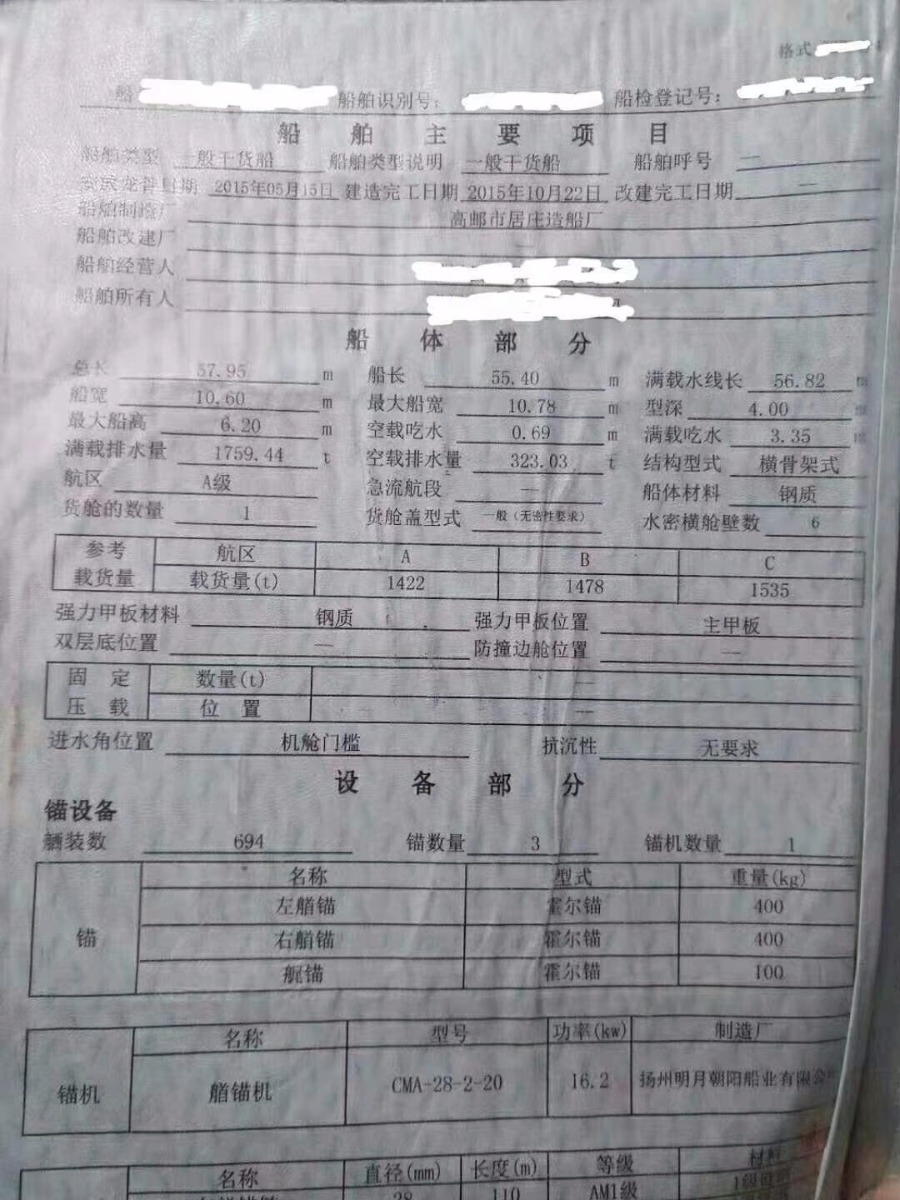 格式
船 船舶识别号: 船检登记号:
船舶主要项目
船舶类型 一般干货船 船舶类型说明 一般干货船 船舶呼号 —
安放龙骨日期 2015年05月15日 建造完工日期 2015年10月22日 改建完工日期 —
船舶制造厂 高邮市居庄造船厂
船舶改建厂 —
船舶经营人
船舶所有人
船体部分
总长 57.95 m 船长 55.40 m 满载水线长 56.82 m
船宽 10.60 m 最大船宽 10.78 m 型深 4.00 m
最大船高 6.20 m 空载吃水 0.69 m 满载吃水 3.35 m
满载排水量 1759.44 t 空载排水量 323.03 t 结构型式 横骨架式
航区 A级 急流航段 — 船体材料 钢质
货舱的数量 1 货舱盖型式 一般(无密性要求) 水密横舱壁数 6
参考载货量 航区 A B C
载货量(t) 1422 1478 1535
强力甲板材料 钢质 强力甲板位置 主甲板
双层底位置 — 防撞边舱位置 —
固定压载 数量(t) —
位置 —
进水角位置 机舱门槛 抗沉性 无要求
设备部分
锚设备
舾装数 694 锚数量 3 锚机数量 1
锚 名称 型式 重量(kg)
左艏锚 霍尔锚 400
右艏锚 霍尔锚 400
艉锚 霍尔锚 100
锚机 名称 型号 功率(kw) 制造厂
艏锚机 CMA-28-2-20 16.2 扬州明月朝阳船业有限公
名称 直径(mm) 长度(m) 等级 材料
28 110 AM1级 1级